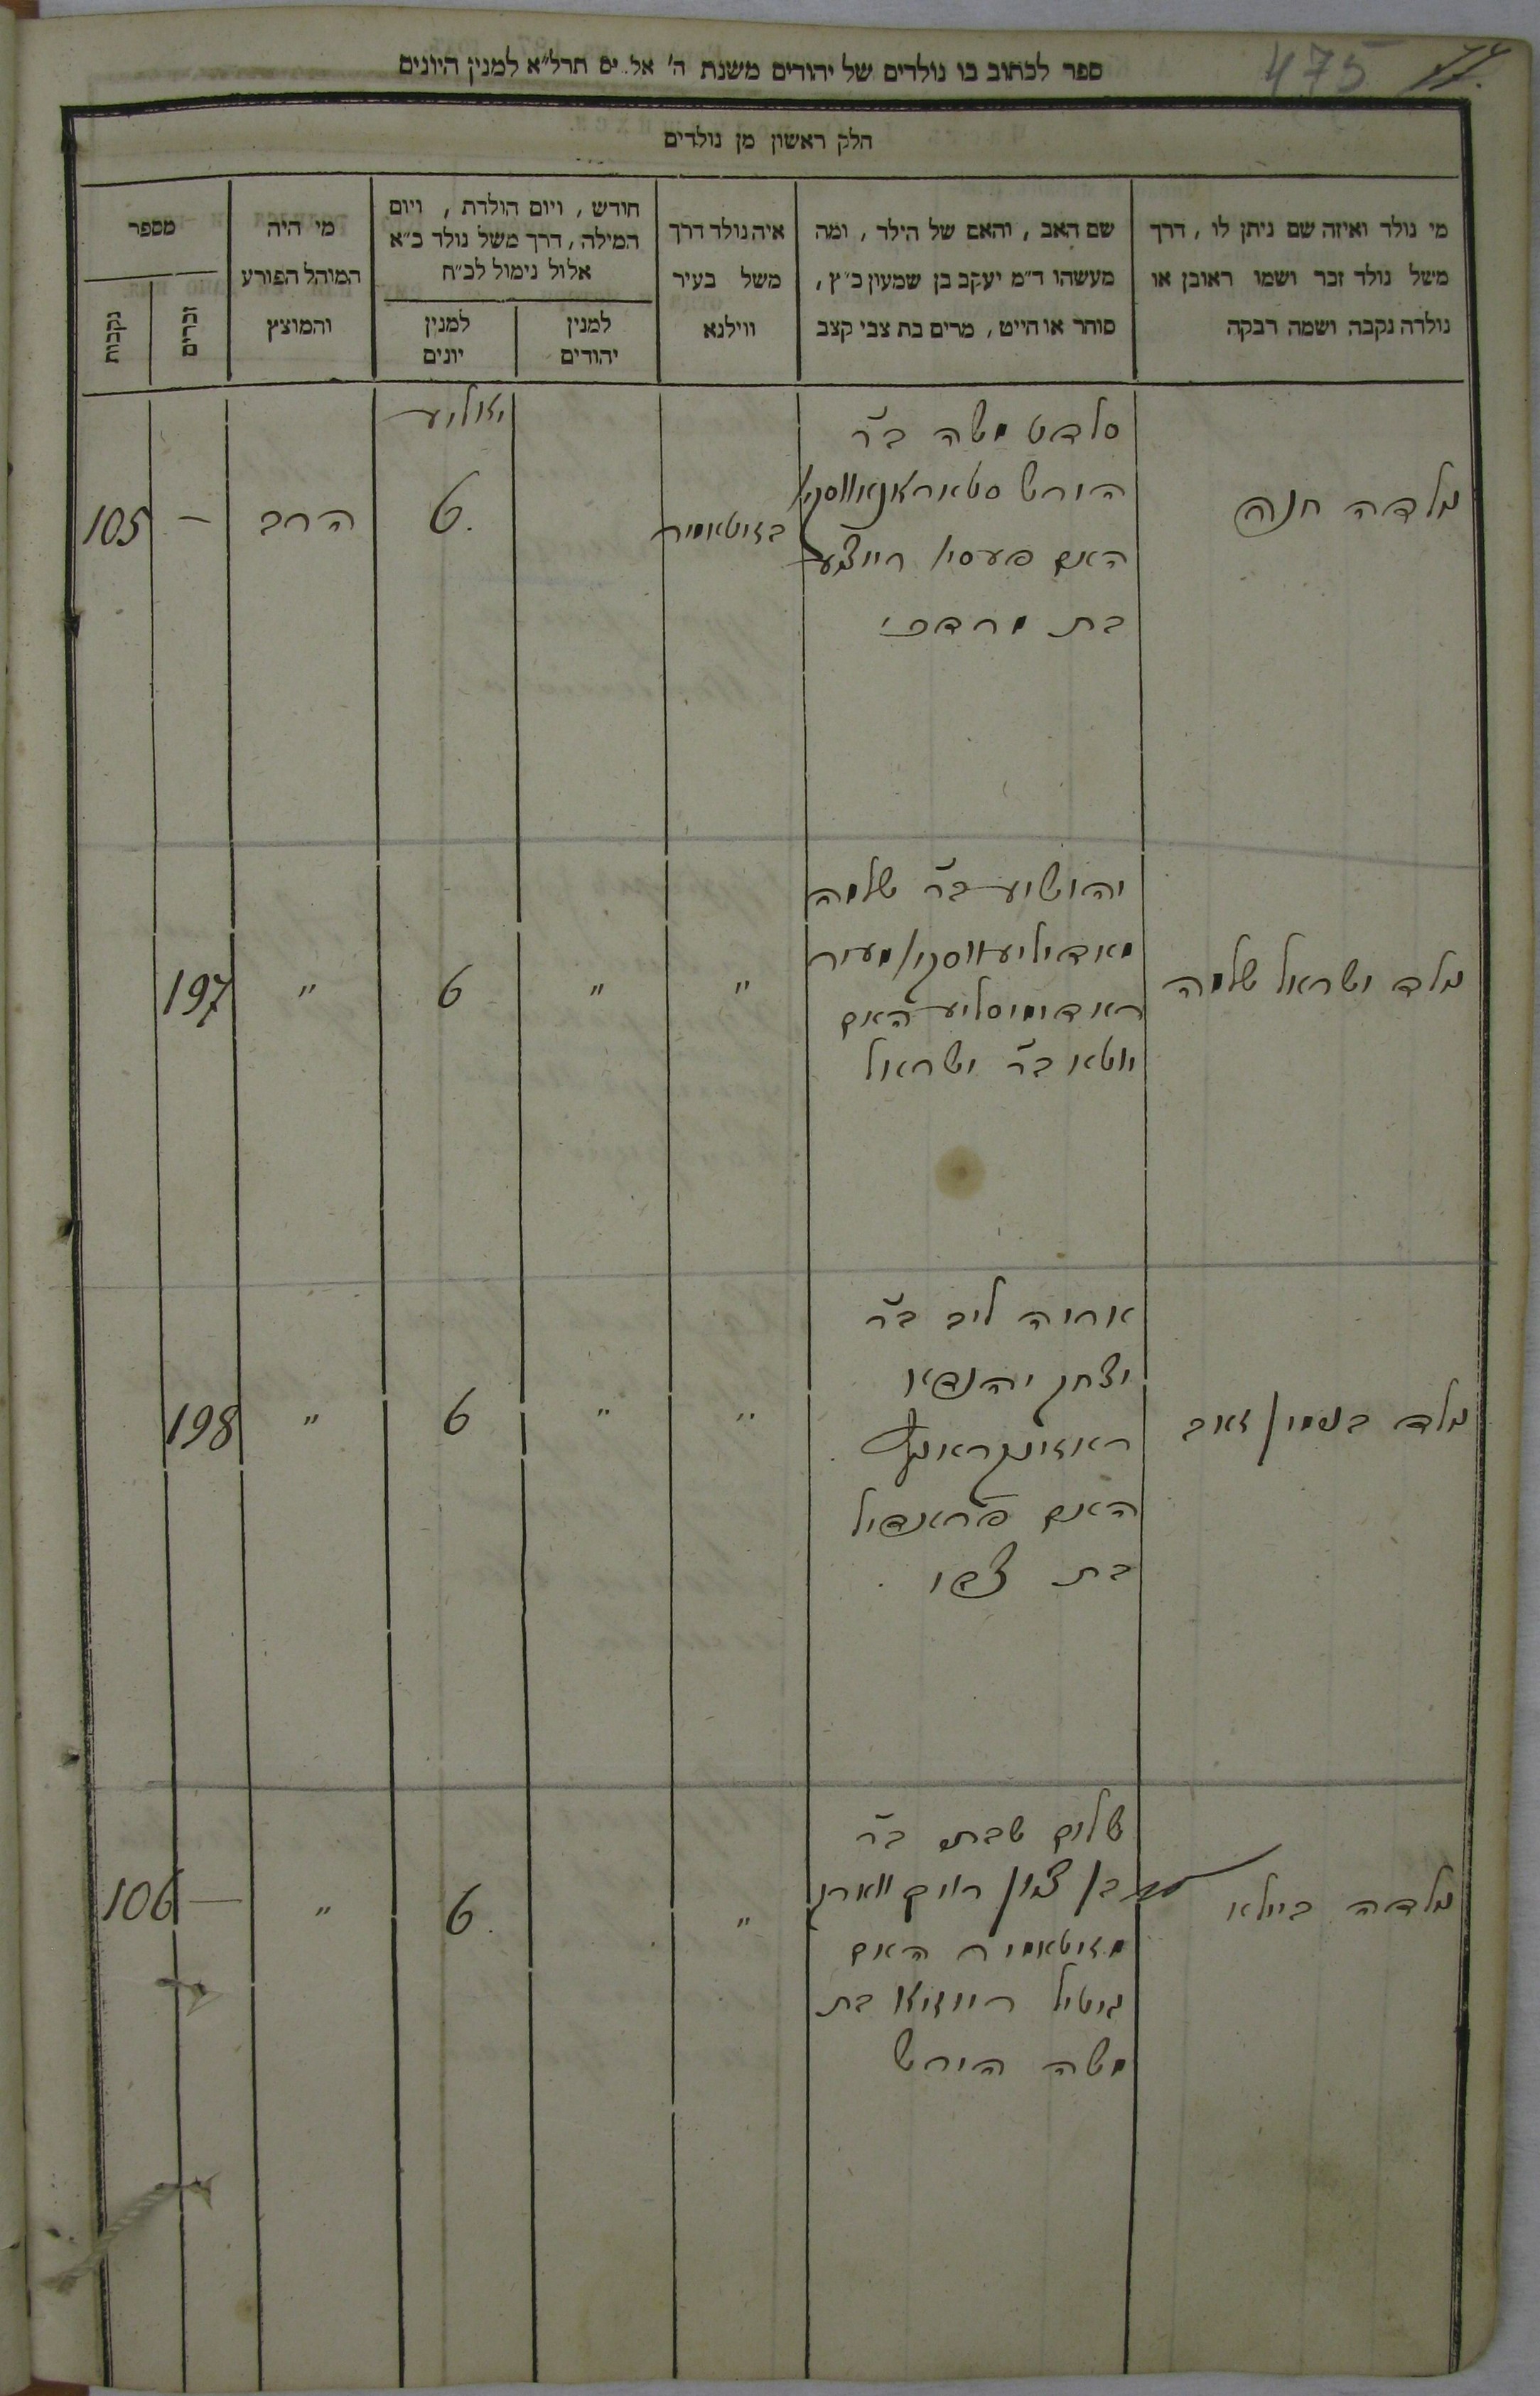 475
ספר לכתוב בו נולדים של יהודים משנת ה' אל.. ים תרל״א למנין היונים
חלק ראשון מן נולדים
מי נולד ואיזה שם ניתן לו, דרך
משל נולד זכר ושמו ראובן או
נולדה נקבה ושמה רבקה
שם האב, והאם של הילד, ומה
מעשהו ד״מ יעקב בן שמעון כ״ץ,
סוחר או חייט, מרים בת צבי קצב
איה נולד דרך
משל בעיר
ווילנא
חודש, ויום הולדת, ויום
המילה, דרך משל נולד כ״א
אלול נימול לכ״ח
למנין
יהודים
למנין
יונים
מי היה
המוהל הפורע
והמוצץ
מספר
זכרים
נקבות
נולדה חנה
סלדט משה ב״ר
הירש
האם פעסי
בת מרדכי
בזיטאמיר
יאוליע
6.
הרב
—
105
נולד ישראל שלמה
יהושיע ב״ר שלמה
האם
יוטא ב״ר ישראל
״
״
6
״
197
נולד בנימין זאב
אריה ליב ב״ר
יצחק יהודא
האם פראדיל
בת צבי
״
״
6
״
198
נולדה ביילא
שלום שבתי ב״ר
בן ציון
מזיטאמיר האם
גיטיל רייזיא בת
משה הירש
״
6.
״
—
106